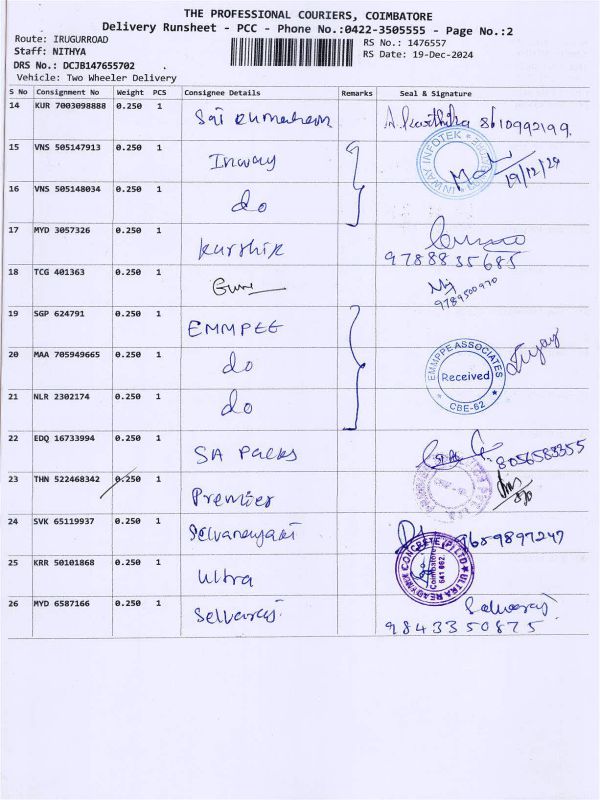 THE PROFESSIONAL COURIERS, COIMBATORE
Delivery Runsheet - PCC - Phone No.:0422-3505555 - Page No.:2
Route: IRUGURROAD
RS No.: 1476557
Staff: NITHYA
RS Date: 19-Dec-2024
DRS No.: DCJB147655702
Vehicle: Two Wheeler Delivery
S No Consignment No Weight PCS Consignee Details Remarks Seal & Signature
14 KUR 7003098888 0.250 1 Sai
8610992199
15 VNS 505147913 0.250 1 Inway
INWAY INFOTEK
19/12/24
16 VNS 505148034 0.250 1 do
17 MYD 3057326 0.250 1
9788835685
18 TCG 401363 0.250 1
19 SGP 624791 0.250 1 EMMPEE
20 MAA 705949665 0.250 1 do
EMMPPE ASSOCIATES
Received
CBE-62
21 NLR 2302174 0.250 1 do
22 EDQ 16733994 0.250 1 SA Packs
8056583355
23 THN 522468342 0.250 1 Premier
24 SVK 65119937 0.250 1
9659897247
25 KRR 50101868 0.250 1 Ultra
ULTRA READYMIX CONCRETE (P) LTD
Coimbatore
641 062.
26 MYD 6587166 0.250 1 Selvaraj
Selvaraj
9843350875